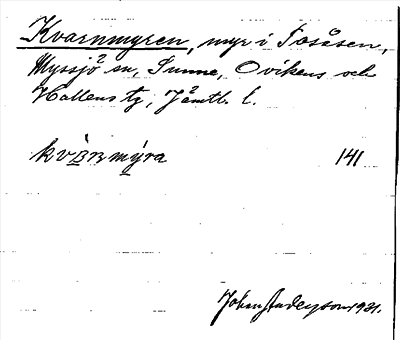 Kvarnmyren, myr i Tosåsen,
Myssjö sn, Sunne, Ovikens och
Hallens tg, Jämtl. l.
kvàrnmýra 141
Johan Anderson 1931.